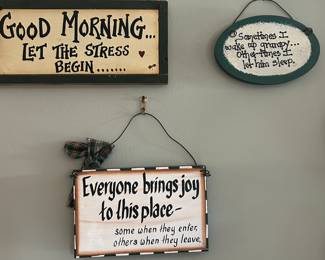 GOOD MORNING...
LET THE STRESS
BEGIN.......
Sometimes I
wake up grumpy...
Other times I
let him sleep.
Everyone brings joy
to this place-
some when they enter,
others when they leave.